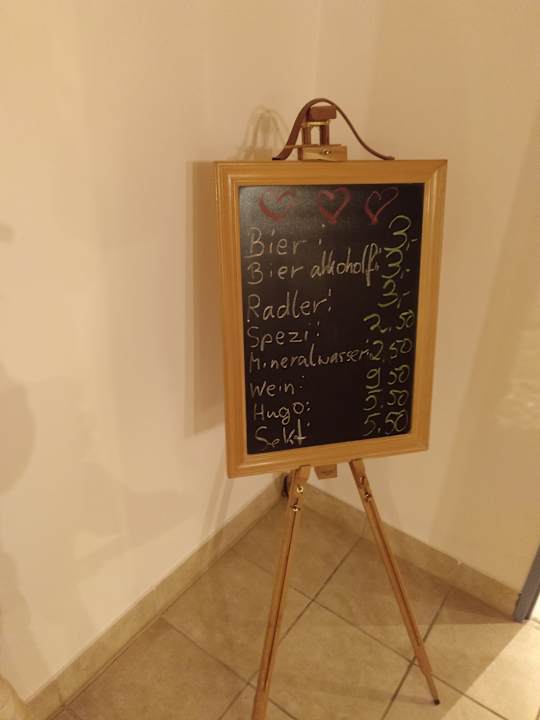 Bier: 3,-
Bier alkoholf: 3,-
Radler: 3,-
Spezi: 2,50
Mineralwasser: 2,50
Wein: 
Hugo: 5,50
Sekt: 5,50